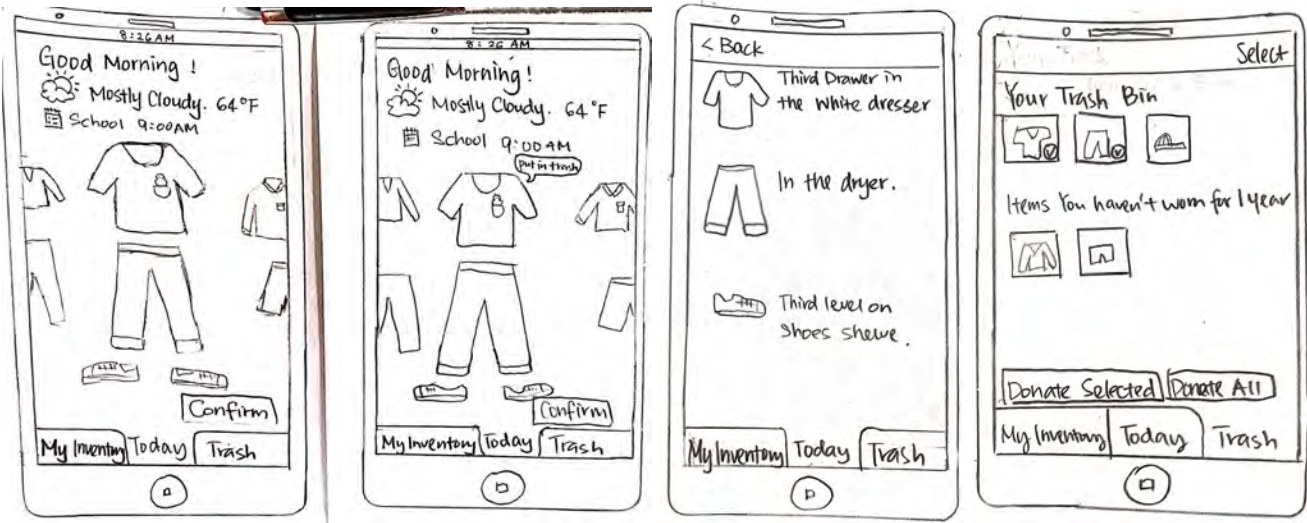 8:26 AM
Good Morning !
Mostly Cloudy. 64°F
School 9:00AM
Confirm
My Inventory Today Trash
8:26 AM
Good Morning!
Mostly Cloudy. 64°F
School 9:00 AM
Put in trash
Confirm
My Inventory Today Trash
< Back
Third Drawer in
the White dresser
In the dryer.
Third level on
Shoes shelve.
My Inventory Today Trash
Select
Your Trash Bin
Items You haven't worn for 1 year
Donate Selected Donate All
My Inventory Today Trash